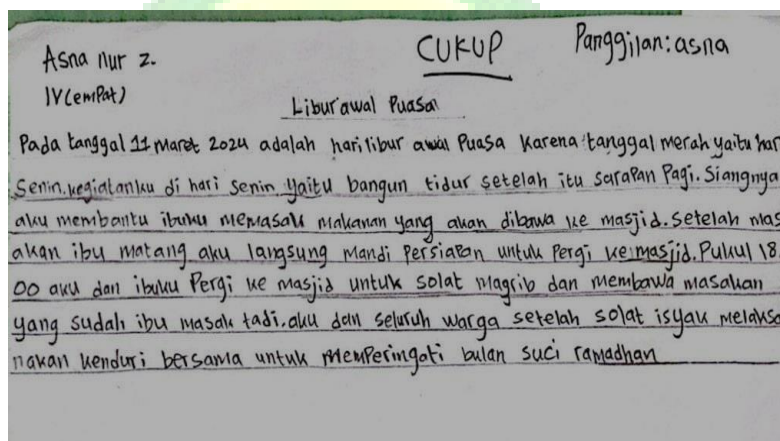 Asna nur z.
CUKUP
Panggilan: asna
IV (emPat)
Libur awal Puasa
Pada tanggal 11 Maret 2024 adalah hari libur awal Puasa Karena tanggal merah yaitu har
Senin. kegiatanku di hari senin yaitu bangun tidur setelah itu saraPan Pagi. Siangnya
aku membantu ibuku memasak makanan yang akan dibawa ke masjid. setelah mas
akan ibu matang aku langsung Mandi PersiaPan untuk Pergi ke masjid. Pukul 18.
00 aku dan ibuku Pergi ke masjid untuk solat magrib dan membawa masakan
yang sudah ibu masak tadi. aku dan seluruh warga setelah solat isyak melaksa
nakan kenduri bersama untuk memPeringati bulan suci ramadhan